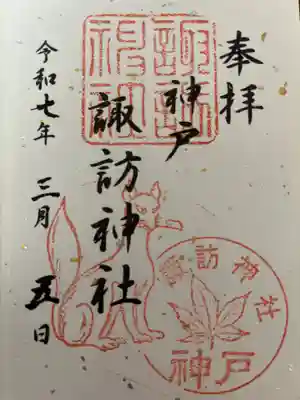 奉拝
神戸
諏訪神社
令和七年 三月 五日
諏訪神社
諏訪神社
神戸